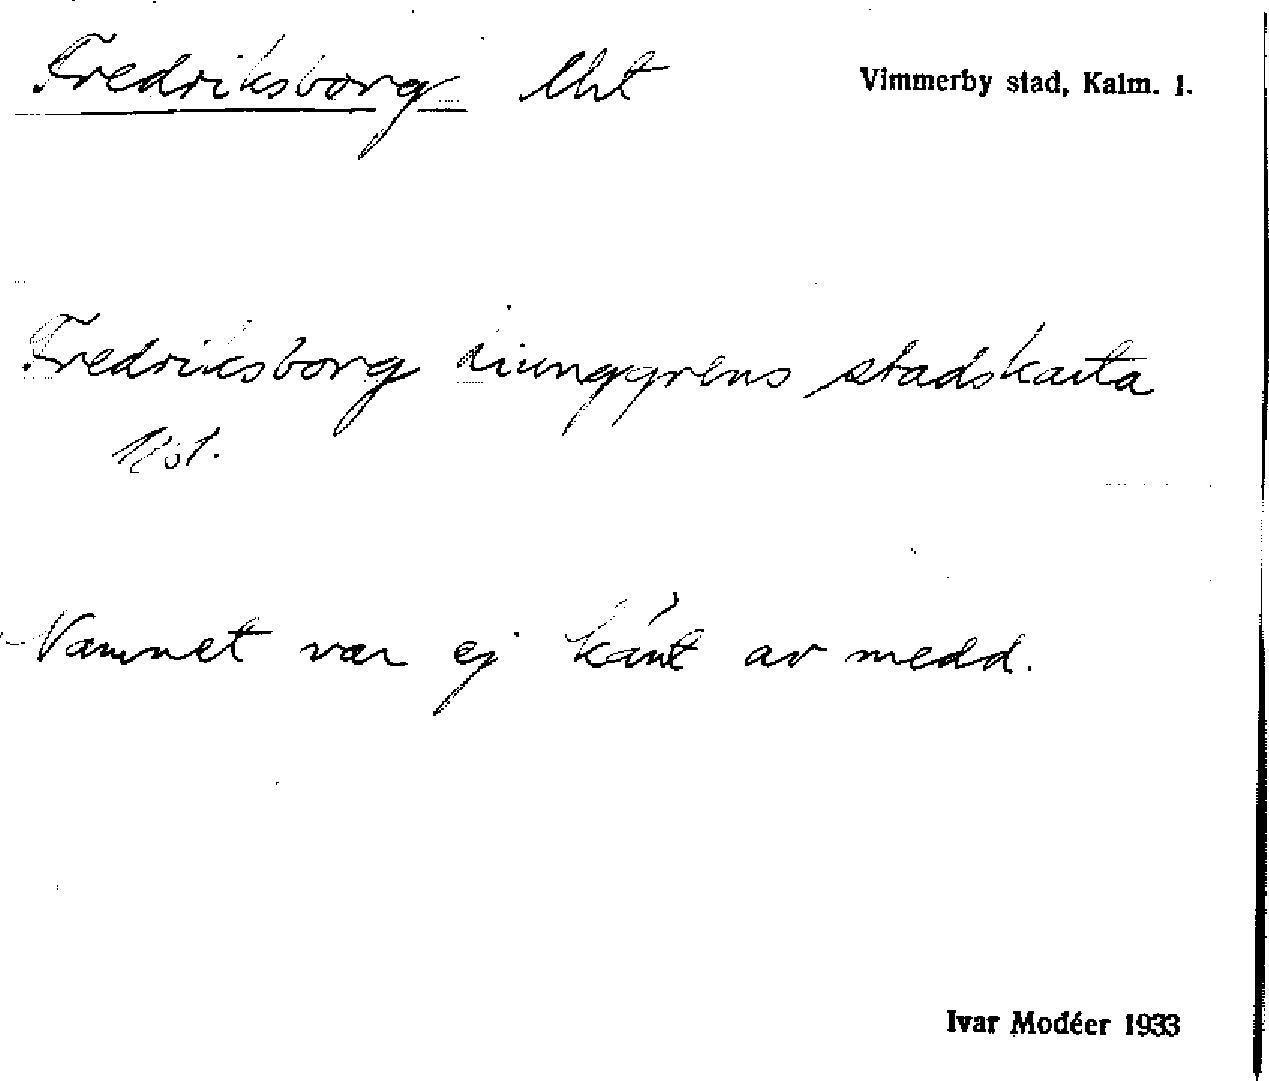 Fredriksborg lht Vimmerby stad, Kalm. l.
Fredriksborg Ljunggrens stadskarta
1861.
Namnet var ej känt av medd.
Ivar Modéer 1933